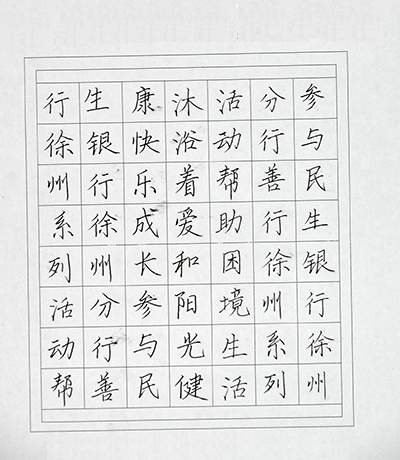 参与民生银行徐州
分行善行徐州系列
活动帮助困境生活
沐浴着爱和阳光健
康快乐成长参与民
生银行徐州分行善
行徐州系列活动帮